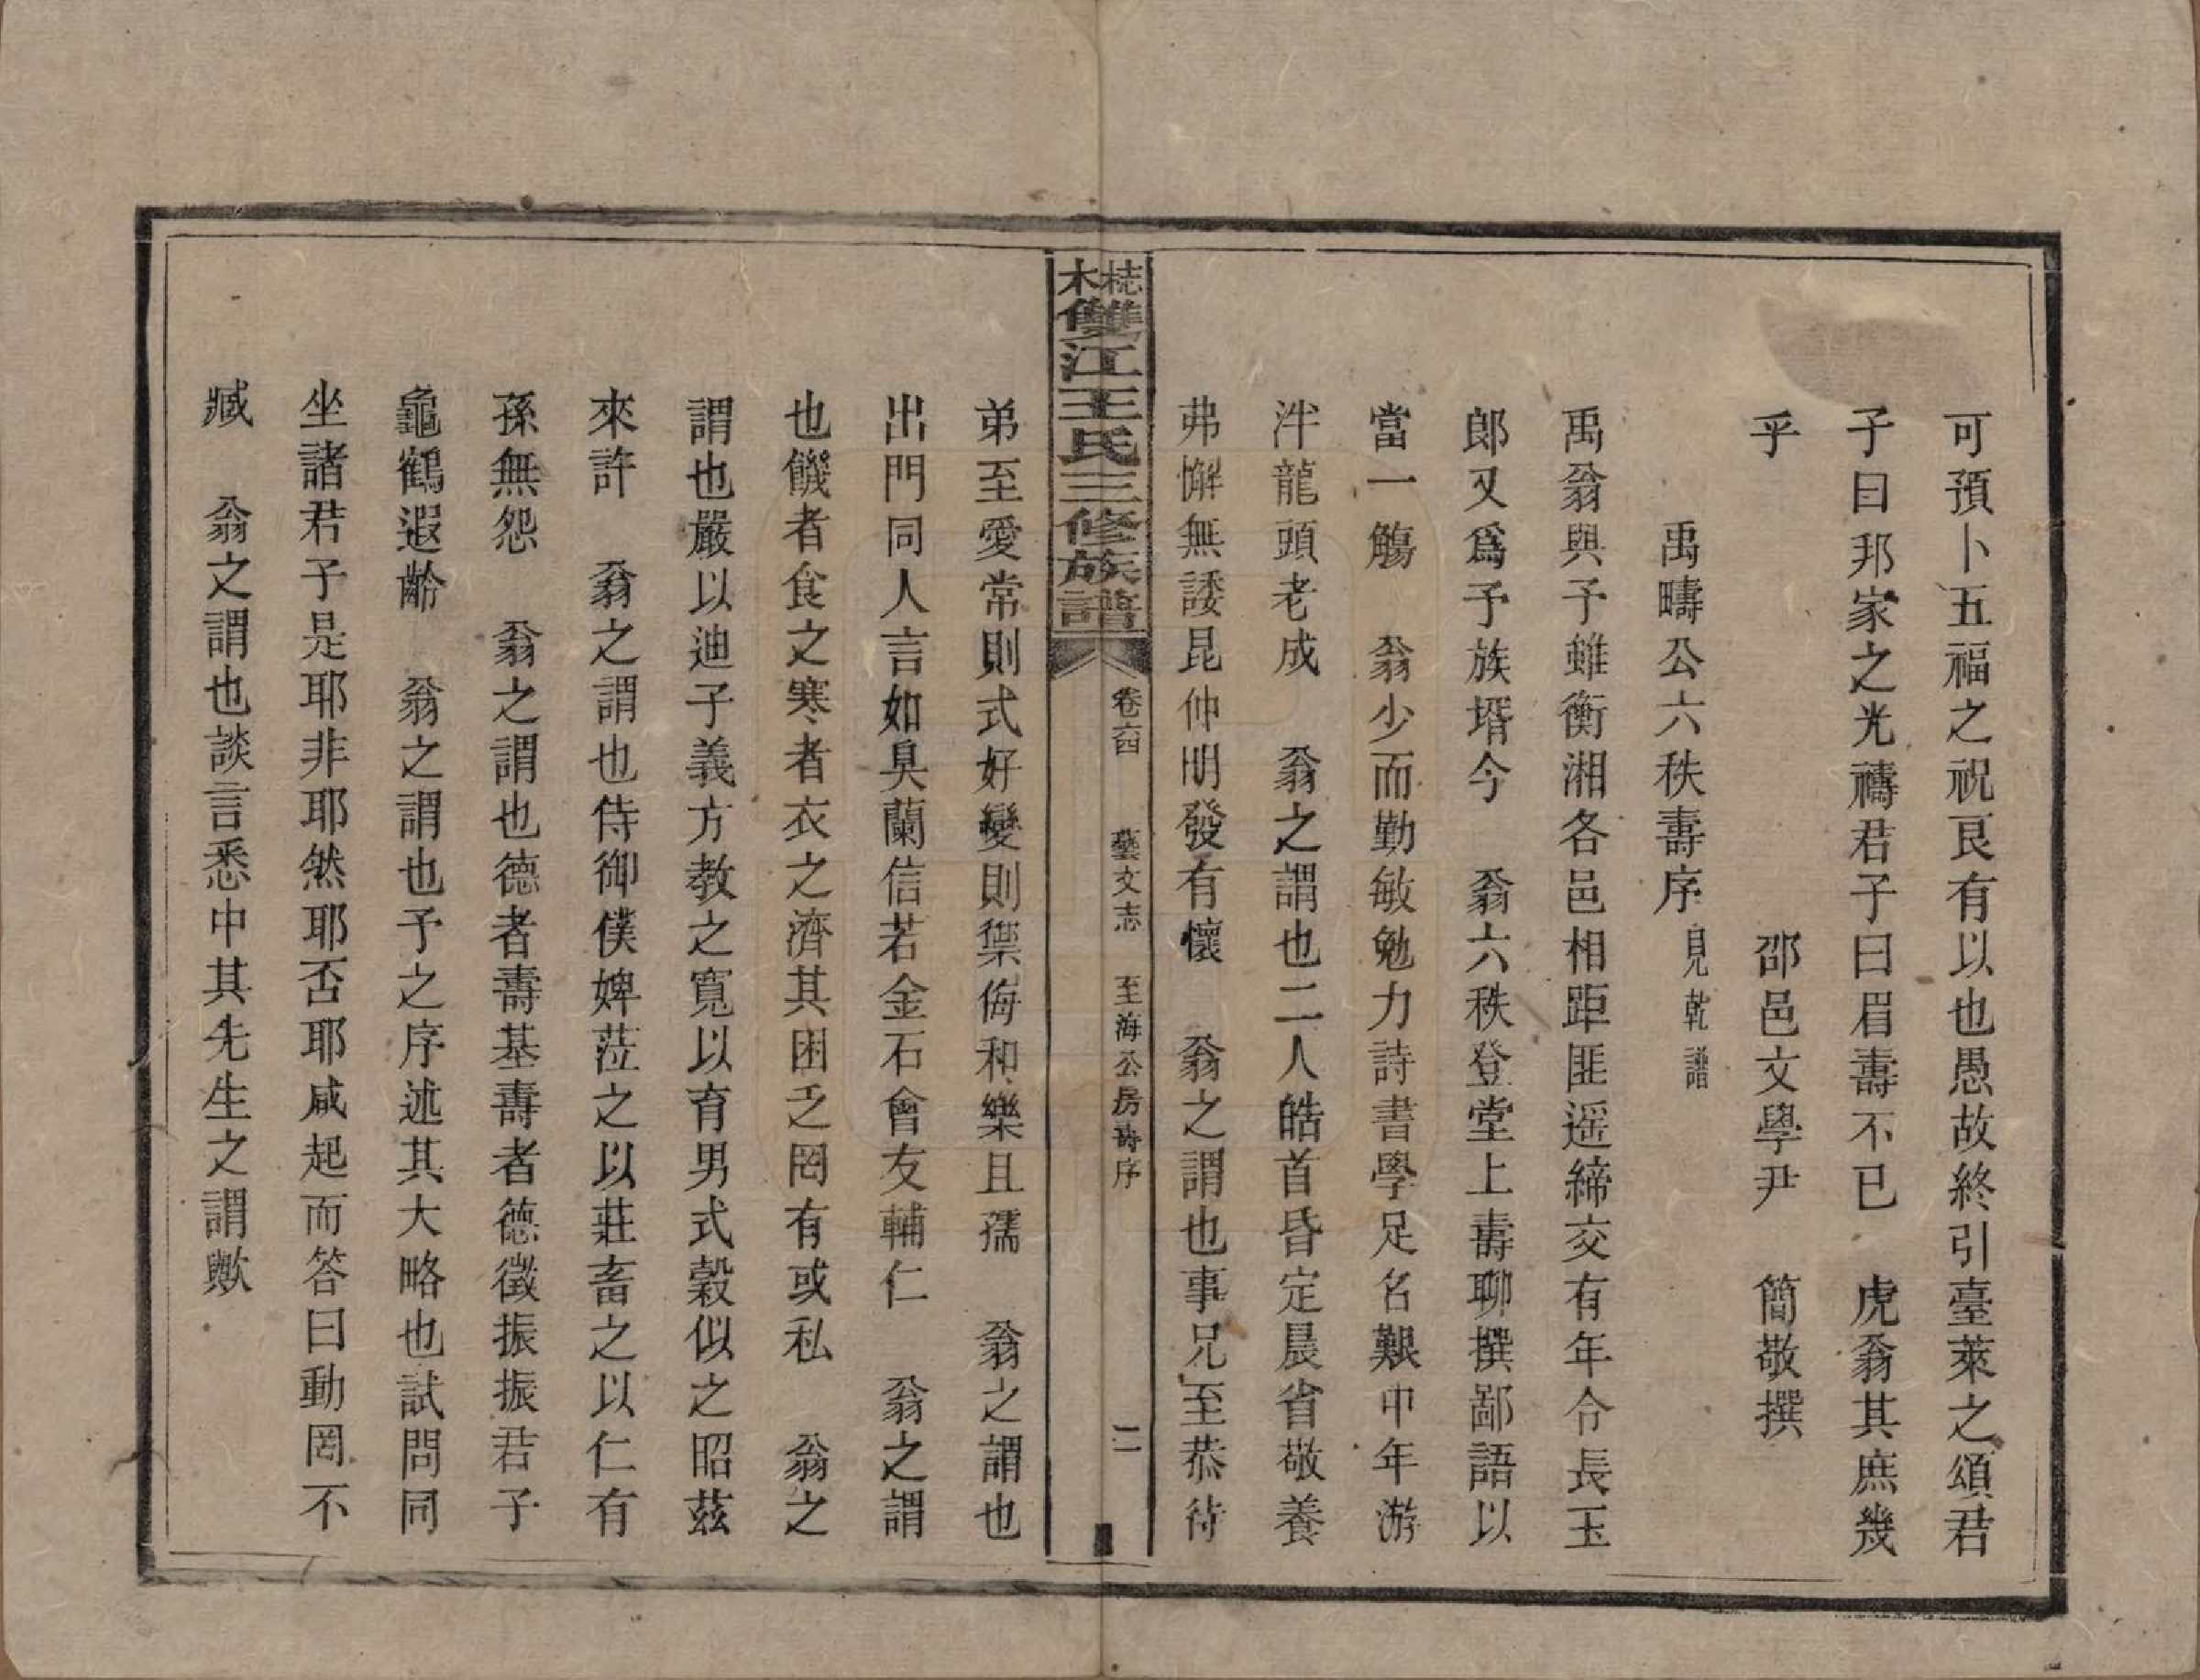 可預卜五福之祝良有以也愚故終引臺萊之頌君
子曰邦家之光禱君子曰眉壽不已　虎翁其庶幾
乎　邵邑文學尹　簡敬撰
禹疇公六秩壽序見乾譜
禹翁與予雖衡湘各邑相距匪遥締交有年令長玉
郎又爲予族壻今　翁六秩登堂上壽聊撰鄙語以
當一觴　翁少而勤敏勉力詩書學足名艱中年游
泮龍頭老成　翁之謂也二人皓首昏定晨省敬養
弗懈無諉昆仲明發有懷　翁之謂也事兄至恭待
桎木雙江王氏三修族譜　卷六四　藝文志　至海公房壽序　二
弟至愛常則式好變則禦侮和樂且孺　翁之謂也
出門同人言如臭蘭信若金石會友輔仁　翁之謂
也饑者食之寒者衣之濟其困乏罔有或私　翁之
謂也嚴以迪子義方教之寬以育男式榖似之昭茲
來許　翁之謂也侍御僕婢蒞之以莊畜之以仁有
孫無怨　翁之謂也德者壽基壽者德徵振振君子
龜鶴遐齡　翁之謂也予之序述其大略也試問同
坐諸君子是耶非耶然耶否耶咸起而答曰動罔不
臧　翁之謂也談言悉中其先生之謂歟